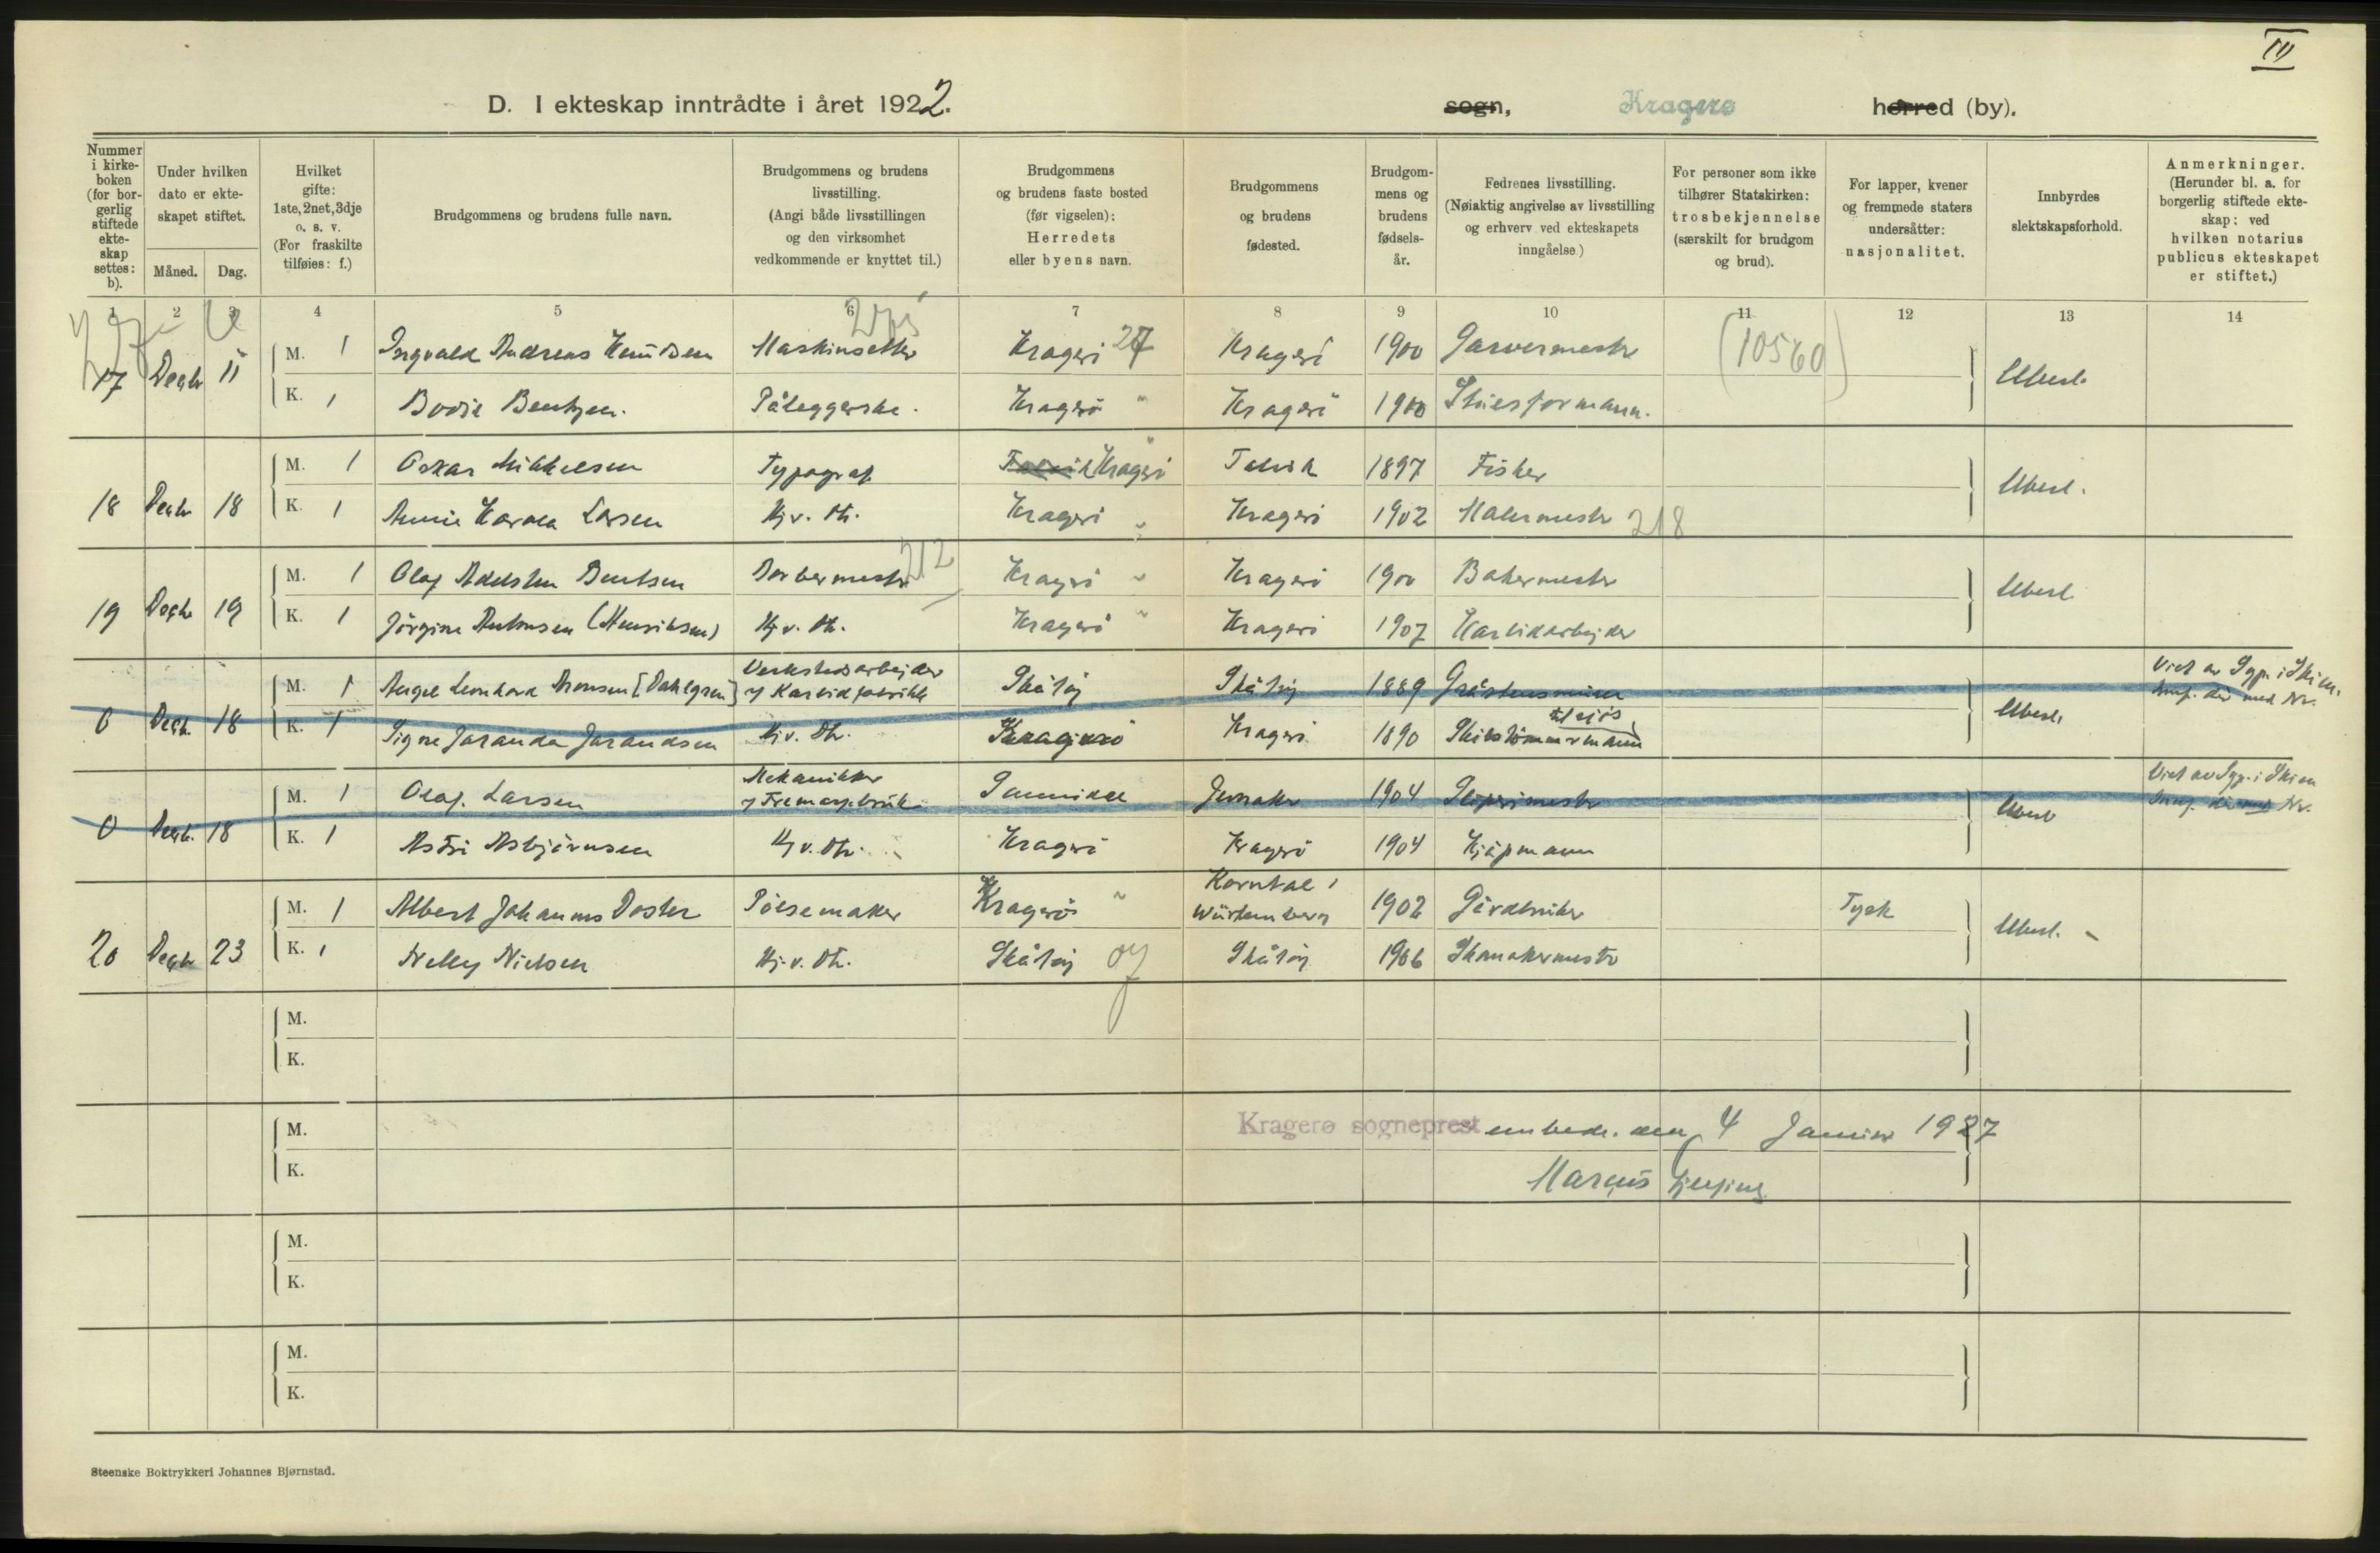 IV
D. I ekteskap inntrådte i året 1922. sogn, Kragerø herred (by).
Nummer i kirkeboken (for borgerlig stiftede ekteskap settes: b).
Under hvilken dato er ekteskapet stiftet.
Måned. Dag.
Hvilket gifte: 1ste, 2net, 3dje o. s. v. (For fraskilte tilføies: f.)
Brudgommens og brudens fulle navn.
Brudgommens og brudens livsstilling. (Angi både livsstillingen og den virksomhet vedkommende er knyttet til.)
Brudgommens og brudens faste bosted (før vigselen): Herredets eller byens navn.
Brudgommens og brudens fødested.
Brudgommens og brudens fødselsår.
Fedrenes livsstilling. (Nøiaktig angivelse av livsstilling og erhverv ved ekteskapets inngåelse)
For personer som ikke tilhører Statskirken: trosbekjennelse (særskilt for brudgom og brud).
For lapper, kvener og fremmede staters undersåtter: nasjonalitet.
Innbyrdes slektskapsforhold.
Anmerkninger. (Herunder bl. a. for borgerlig stiftede ekteskap: ved hvilken notarius publicus ekteskapet er stiftet.)
1 2 3 4 5 6 7 8 9 10 11 12 13 14
M. 1 Ingvald Andreas Knudsen Maskinsetter Kragerö 27 Kragerö 1900 Garvermestr (10560)
17 Decbr 11 Ubesl.
K. 1 Bodil Bentzen. Påleggerske. Kragerö " Kragerö 1900 Stuesformann.
M. 1 Oskar Mikkelsen Typograf Talvik Kragerö Talvik 1897 Fisker
18 Decbr 18 Ubesl.
K. 1 Annie Karola Larsen Hj. v. Dtr. Kragerö " Kragerö 1902 Malermestr 218
M. 1 Olaf Adelsten Bentsen Barbermestr 212 Kragerö " Kragerö 1900 Bakermestr
19 Decbr 19 Ubesl.
K. 1 Jörgine Antonsen (Henriksen) Hj. v. Dtr. Kragerö " Kragerö 1907 Karbidarbejder
Verkstedsarbejder
M. 1 Leonhard Aronsen [Dahlgren] v/ Karbidfabrikk Skåtöy Skåtöy 1889 Vict av Sgpr. i Skien.
0 Decbr. 18 Ubesl. Innf. der med Nr.
til sjös
K. 1 Signe Jaranda Jarandsen Hj. v. Dtr. Kragerö Kragerö 1890 Skibstömmermann
Mekanikker
M. 1 Olaf Larsen Sannidal Jevnaker 1904 Sliperimestr Vict av Sgpr. i Skien
0 Decbr. 18 Ubesl Innf. der med Nr.
K. 1 Astri Asbjörnsen Hj. v. Dtr. Kragerö Kragerö 1904 Kjöpmann
Korntal i
M. 1 Albert Johannes Doster Pölsemaker Kragerö " Würtemberg 1902 Gårdbruker Tysk
20 Decbr 23 Ubesl.
K. 1 Nelly Nielsen Hj. v. Dtr. Skåtöy 07 Skåtöy 1906 Skomakermestr
M.
K.
M.
Kragerø sogneprestembede. den 4 Januar 1927
K.
Marcus
M.
K.
M.
K.
Steenske Boktrykkeri Johannes Bjørnstad.